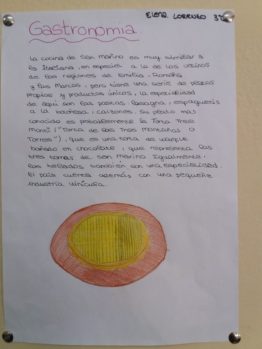 Elena Lorenzo 3ºE
Gastronomia
La cocina de San Marino es muy similar a
la italiana, en especial a la de los vecinos
de las regiones de Emilia-Romaña
y las Marcas, pero tiene una serie de platos
propios y productos únicos, la especialidad
de aquí son las pastas (lasagna, espaguetis
a la boloñesa, ... su plato más
conocido es probablemente la Torta Tres
Monti ("Torta de las Tres montañas o
Torres"), que es una torta de
bañada en chocolate, que representa las
tres torres de San Marino. Igualmente
los también son una especialidad.
El país cuenta además con una pequeña
industria vinícola.